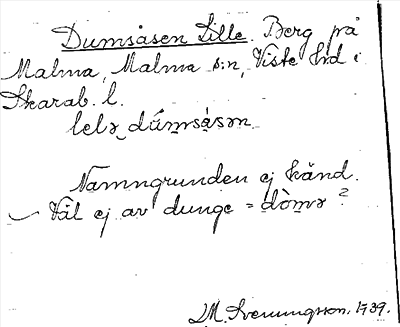 Dumsåsen Lille. Berg på
Malma, Malma s:n, Viste hd i
Skarab. l.
lelə dúmsåsən
Namngrunden ej känd.
Väl ej av dunge = dòmə?
M. Svenungsson. 1939.